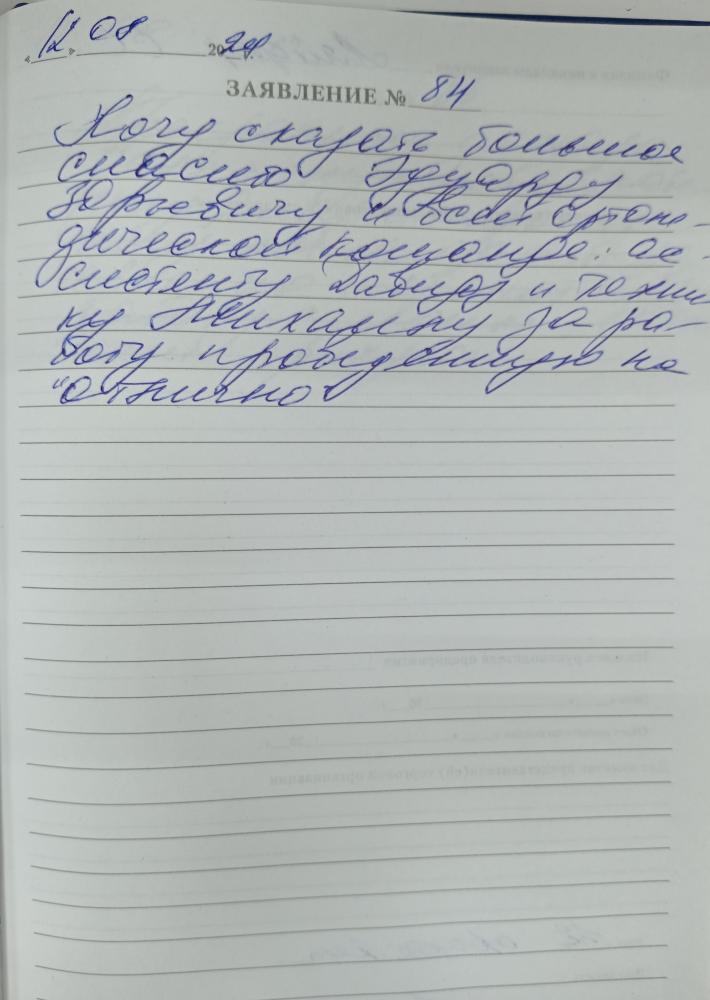 «12» 08 2024
ЗАЯВЛЕНИЕ № 84
Хочу сказать большое
спасибо Эдуарду
Юрьевичу и всей ортопе-
дической команде: ас-
систенту Давиду и техни-
ку Михаилу за ра-
боту проведенную на
"отлично"